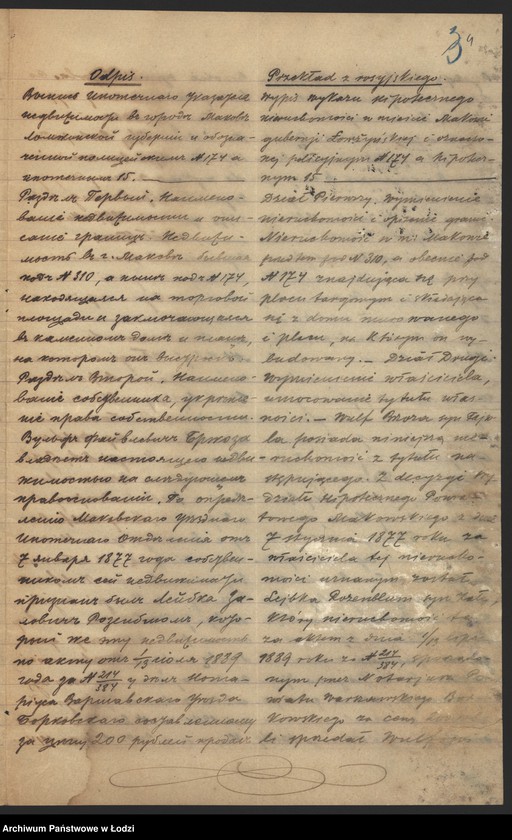 3
4
Odpis.
Выпись Ипотечного Указателя
недвижимости въ городѣ Маковѣ
Ломжинской губерніи и обозна-
ченной полицейскимъ № 174 а
ипотечнымъ 15.
Раздѣлъ Первый. Наимено-
ваніе недвижимости и опи-
саніе границъ. Недвижи-
мость въ г. Маковѣ бывшая
подъ № 310, а нынѣ подъ № 174,
находящаяся на торговой
площади и заключающаяся
въ каменномъ домѣ и плацѣ,
на которомъ онъ
Раздѣлъ Второй. Наимено-
ваніе собственника, укрѣпле-
ніе права собственности.
Вульфъ Файвлевичъ Бржоза
владѣетъ настоящею недви-
жимостью на слѣдующемъ
правоосновании. По опредѣ-
ленію Маковскаго Уѣзднаго
Ипотечнаго Отдѣленія отъ
7 января 1877 года собствен-
никомъ сей недвижимости
признанъ былъ Лейбка За-
ловичъ Розенблюмъ, кото-
рый же эту недвижимость
по акту отъ 1/13 іюля 1839
года за № 214/384 у дѣлъ Нота-
ріуса Варшавскаго Уѣзда
Борковскаго составленному
за цѣну 200 рублей продалъ
Przekład z rosyjskiego.
Wypis wykazu hipotecznego
nieruchomości w mieście Makowie
gubernji Łomżyńskiej i oznaczo-
nej policyjnym № 174 a hipotecz-
nym 15.
Dział Pierwszy. Wymienienie
nieruchomości i opisanie granic
Nieruchomość w m. Makowie
przedtem pod № 310, a obecnie pod
№ 174 znajdująca się przy
placu targowym i składająca
się z domu murowanego
i placu, na którym on wy-
budowany. — Dział Drugi.
Wymienienie właściciela,
umocowanie tytułu włas-
ności. — Wulf Brzoza syn Fajw-
la posiada niniejszą nie-
ruchomość z tytułu na-
stępującego. Z decyzji Wy-
działu Hipotecznego Powia-
towego Makowskiego z dnia
7 stycznia 1877 roku za
właściciela tej nierucho-
mości uznanym został
Lejbka Rozenblum syn Zal
który nieruchomość tę
za aktem z dnia
1839 roku za № 214/384,
nym przez Notarjusza Po-
wiatu Warszawskiego Bor-
kowskiego za cenę
li sprzedał Wulf
Archiwum Państwowe w Łodzi